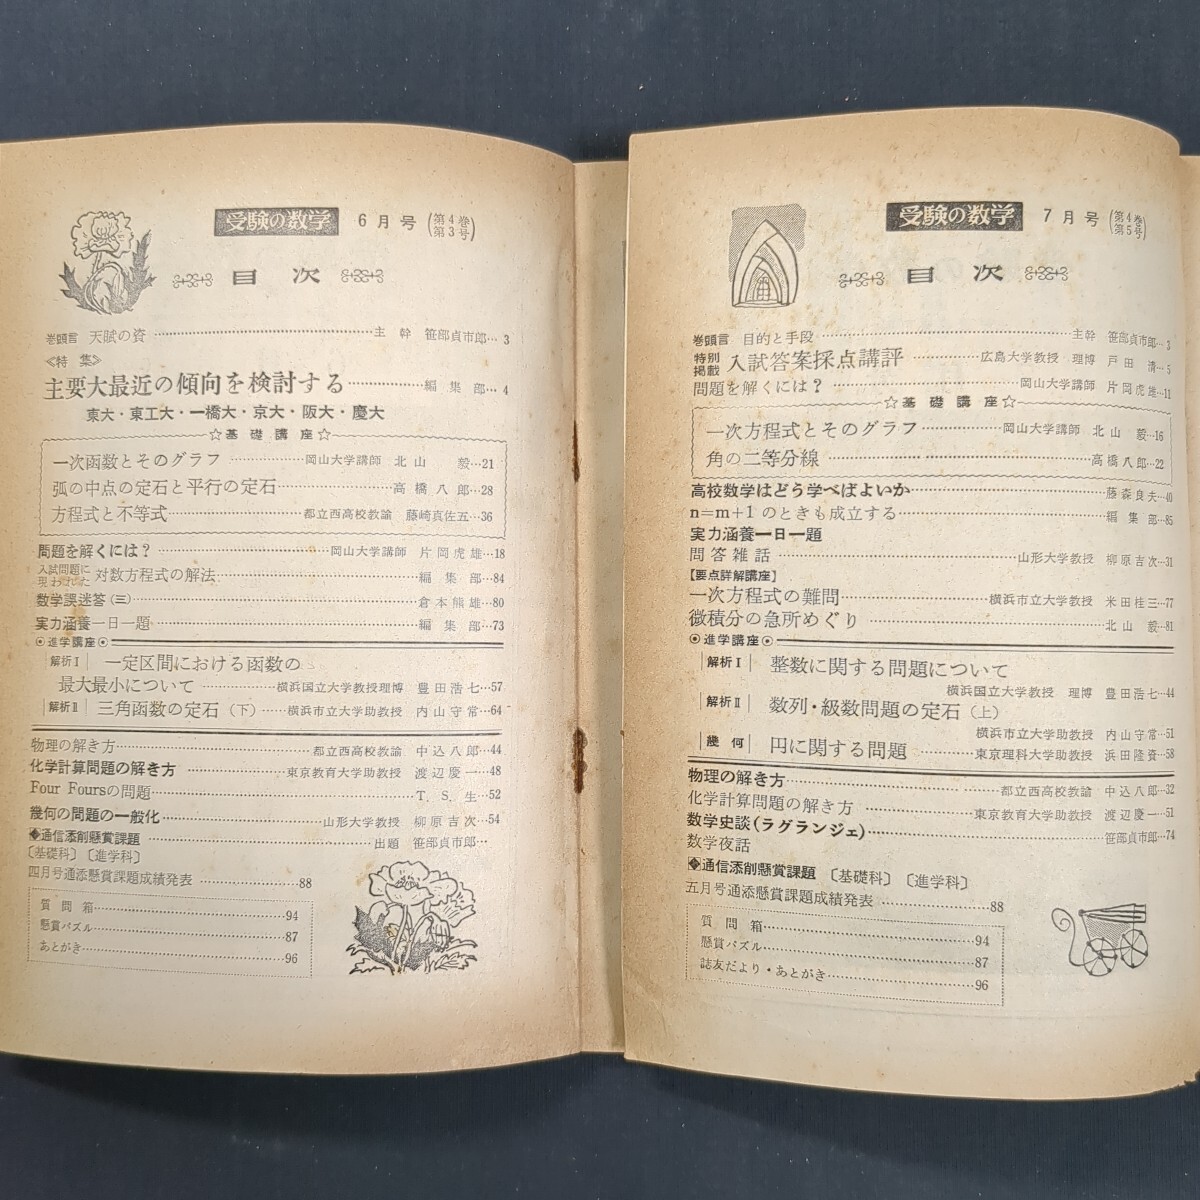 受験の数学 6月号 (第4巻第3号)
目次
巻頭言 天賦の資 主幹 笹部貞市郎… 3
《特集》
主要大最近の傾向を検討する 編集部… 4
東大・東工大・一橋大・京大・阪大・慶大
☆基礎講座☆
一次函数とそのグラフ 岡山大学講師 北山 毅…21
弧の中点の定石と平行の定石 高橋八郎…28
方程式と不等式 都立西高校教諭 藤崎真佐五…36
問題を解くには? 岡山大学講師 片岡虎雄…18
入試問題に現われた 対数方程式の解法 編集部…84
数学誤迷答(三) 倉本熊雄…80
実力涵養一日一題 編集部…73
◉進学講座◉
解析Ⅰ 一定区間における函数の
最大最小について 横浜国立大学教授理博 豊田浩七…57
解析Ⅱ 三角函数の定石(下) 横浜市立大学助教授 内山守常…64
物理の解き方 都立西高校教諭 中込八郎…44
化学計算問題の解き方 東京教育大学助教授 渡辺慶一…48
Four Foursの問題 T. S. 生…52
幾何の問題の一般化 山形大学教授 柳原吉次…54
◆通信添削懸賞課題 出題 笹部貞市郎…
〔基礎科〕〔進学科〕
四月号通添懸賞課題成績発表 88
質問箱 94
懸賞パズル 87
あとがき 96
受験の数学 7月号 (第4巻第5号)
目次
巻頭言 目的と手段 主幹 笹部貞市郎…3
特別掲載 入試答案採点講評 広島大学教授 理博 戸田 清…5
問題を解くには? 岡山大学講師 片岡虎雄…11
☆基礎講座☆
一次方程式とそのグラフ 岡山大学講師 北山 毅…16
角の二等分線 高橋八郎…22
高校数学はどう学べばよいか 藤森良夫…40
n=m+1のときも成立する 編集部…85
実力涵養一日一題
問答雑話 山形大学教授 柳原吉次…31
【要点詳解講座】
一次方程式の難問 横浜市立大学教授 米田桂三…77
微積分の急所めぐり 北山 毅…81
◉進学講座◉
解析Ⅰ 整数に関する問題について
横浜国立大学教授 理博 豊田浩七…44
解析Ⅱ 数列・級数問題の定石(上)
横浜市立大学助教授 内山守常…51
幾何 円に関する問題 東京理科大学教授 浜田隆資…58
物理の解き方 都立西高校教諭 中込八郎…32
化学計算問題の解き方 東京教育大学助教授 渡辺慶一…51
数学史談(ラグランジェ) 笹部貞市郎…74
数学夜話
◆通信添削懸賞課題 〔基礎科〕〔進学科〕
五月号通添懸賞課題成績発表 88
質問箱 94
懸賞パズル 87
誌友だより・あとがき 96